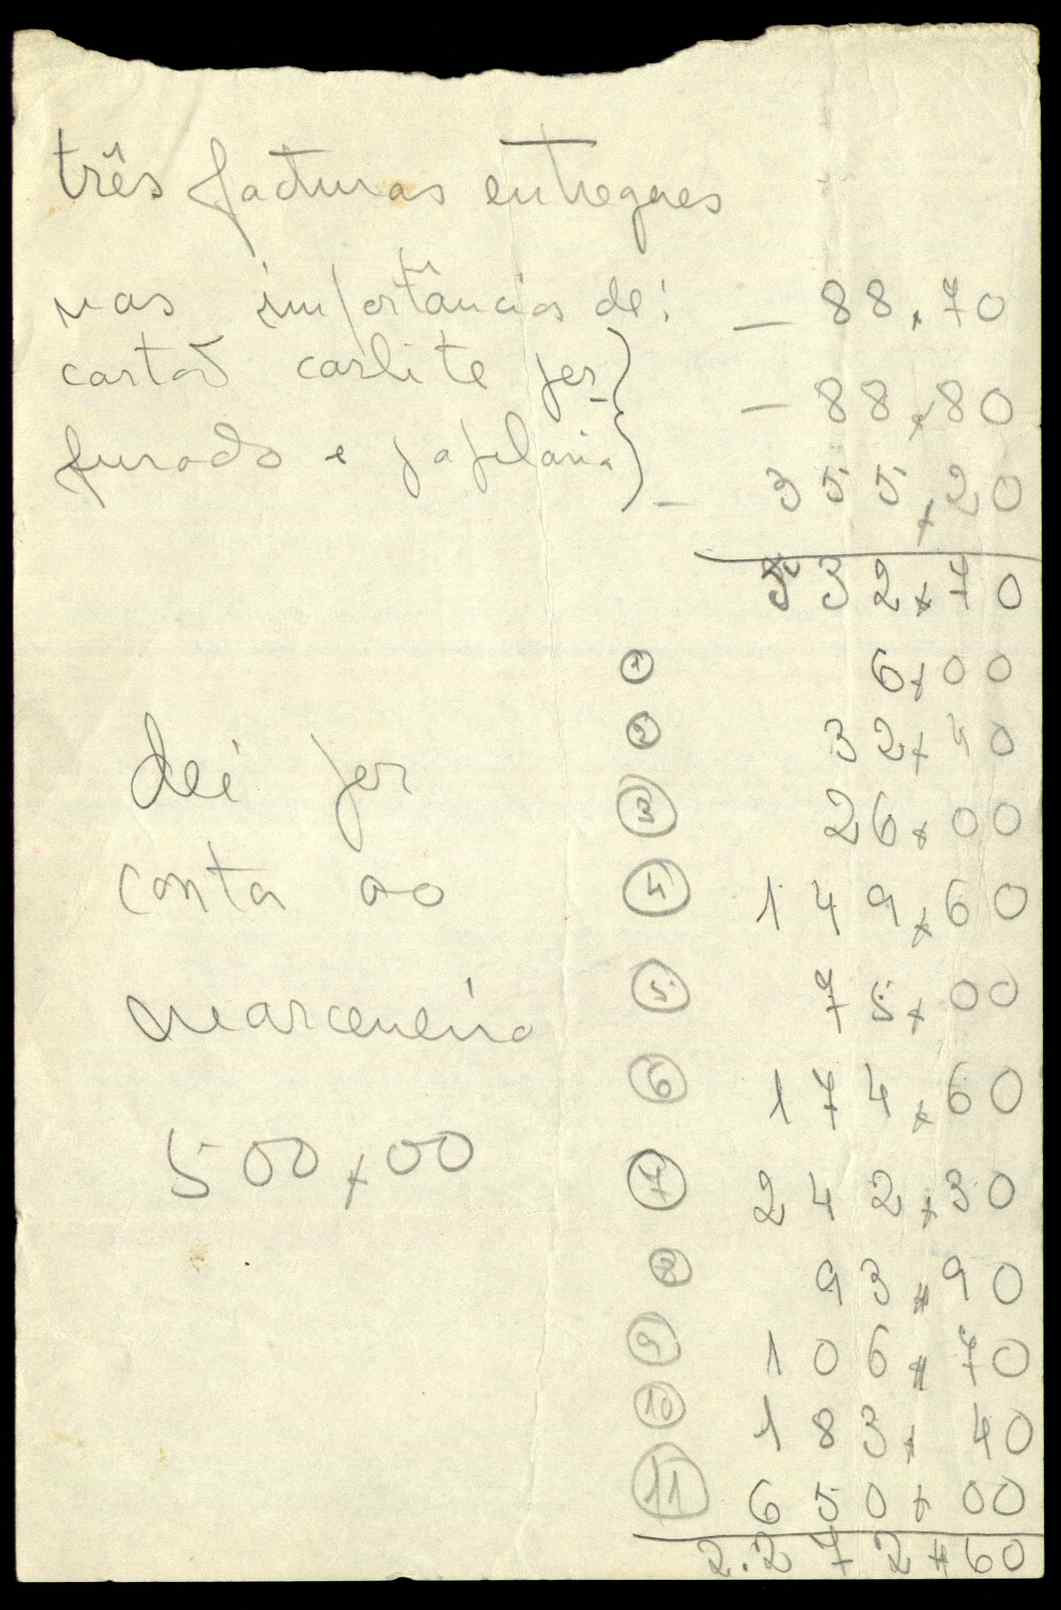 três facturas entregues
nas importâncias de: — 88$70
cartão carlite per- — 88$80
furado e papelaria — 355$20
532$70
1 6$00
2 32$40
dei por
3 26$00
conta ao 4 149$60
marceneiro 5 75$00
6 174$60
500$00 7 242$30
8 93$90
9 106$70
10 183$40
11 650$00
2.272$60